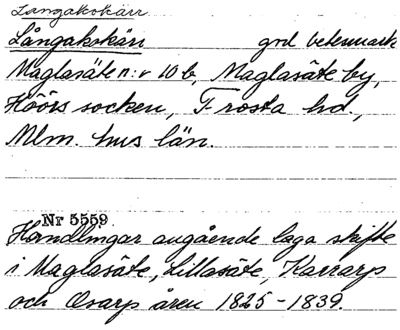 Långakokärr
Långakokärr grd betesmark
Maglasäte n:r 10 b, Maglasäte by,
Höörs socken, Frosta hd.,
Mlm. hus län.
Nr 5559
Handlingar angående laga skifte
i Maglasäte, Lillasäte, Karrarp
och Osarp åren 1825-1839.